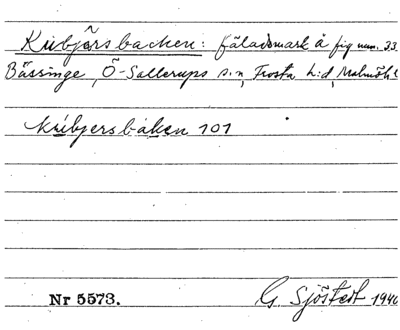 Kubjörsbacken: fäladsmark å fig num. 33
Bässinge, Ö-Sallerups s:n, Frosta h:d, Malmöh. l
kúbjersbaken 101
Nr 5573. G. Sjöstedt 1940